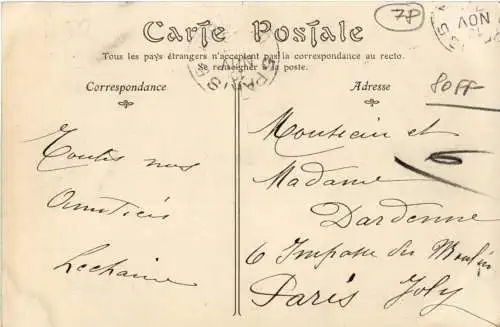 Carte Postale
78
Tous les pays étrangers n'acceptent pas la correspondance au recto.
Se renseigner à la poste.
Correspondance
Adresse
80FF
PARIS
NOV
Toutes nos
Amitiés
Lechaine
Monsieur et
Madame
Dardenne
6 Impasse du Moulin
Paris Joly